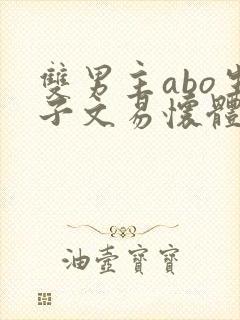 雙男主abo生
子文易懷體
油壺寶寶